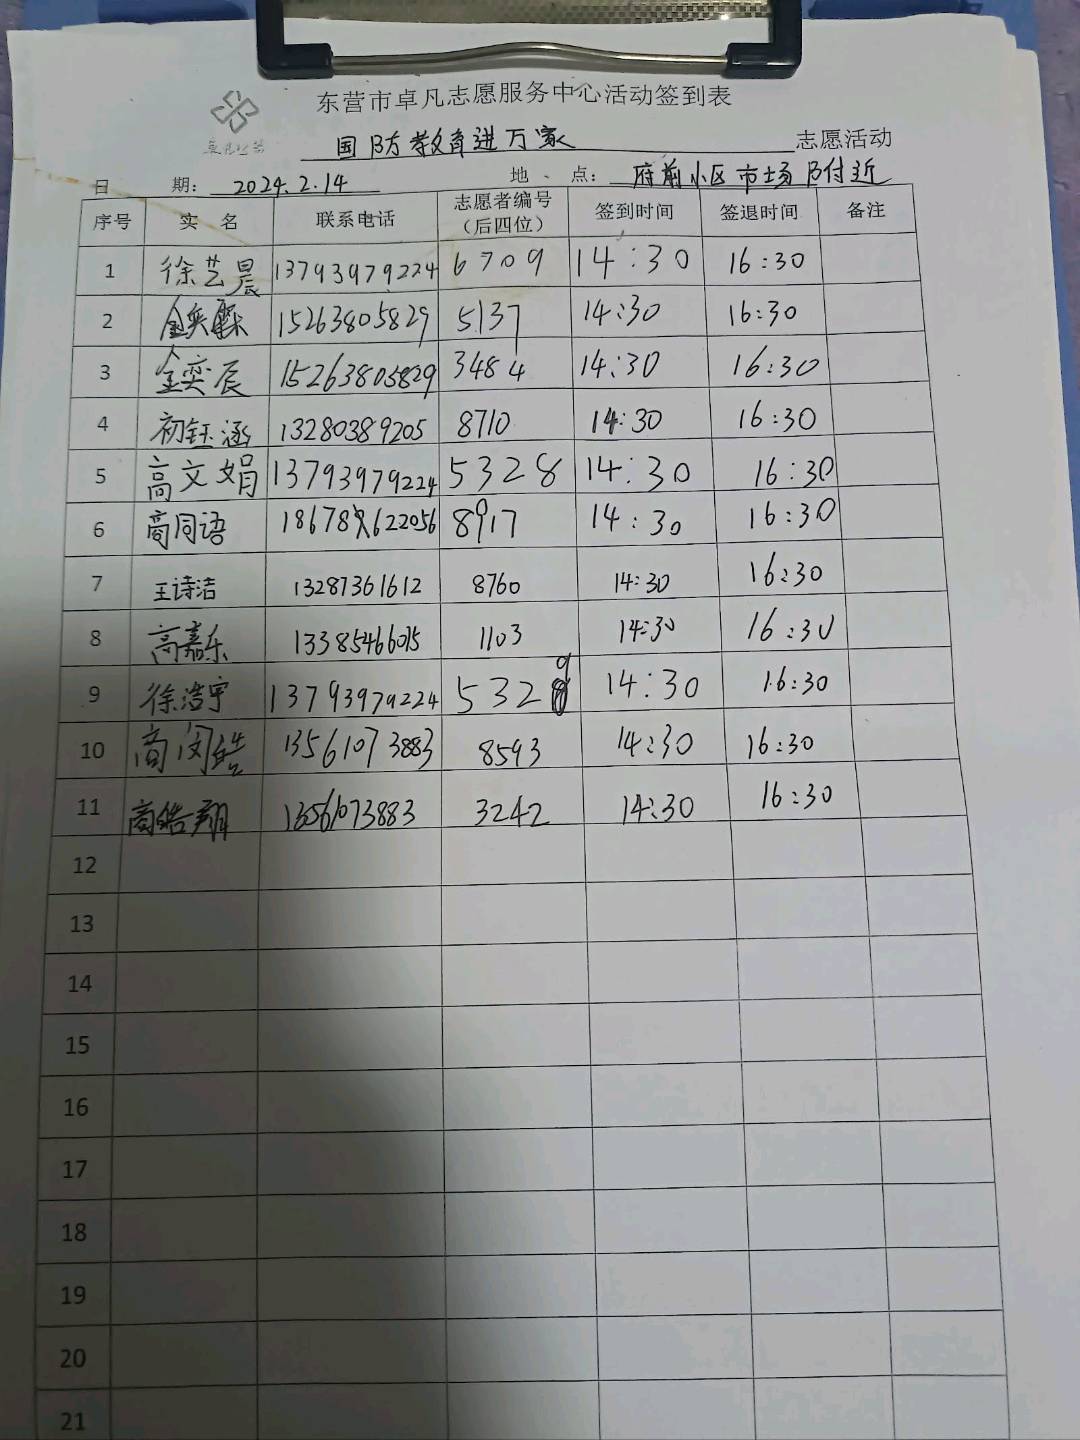 东营市卓凡志愿服务中心活动签到表
国防教育进万家 志愿活动
日期: 2024.2.14 地点: 府前小区市场附近
序号 实名 联系电话 志愿者编号(后四位) 签到时间 签退时间 备注
1 徐艺晨 13793979224 6709 14:30 16:30
2 15263805829 5137 14:30 16:30
3 金奕辰 15263805829 3484 14:30 16:30
4 初钰涵 13280389205 8710 14:30 16:30
5 高文娟 13793979224 5328 14:30 16:30
6 高同语 8917 14:30 16:30
7 王诗洁 13287361612 8760 14:30 16:30
8 高嘉乐 13385466015 1103 14:30 16:30
9 徐浩宇 13793979224 5329 14:30 16:30
10 13561073883 8593 14:30 16:30
11 13561073883 3242 14:30 16:30
12
13
14
15
16
17
18
19
20
21